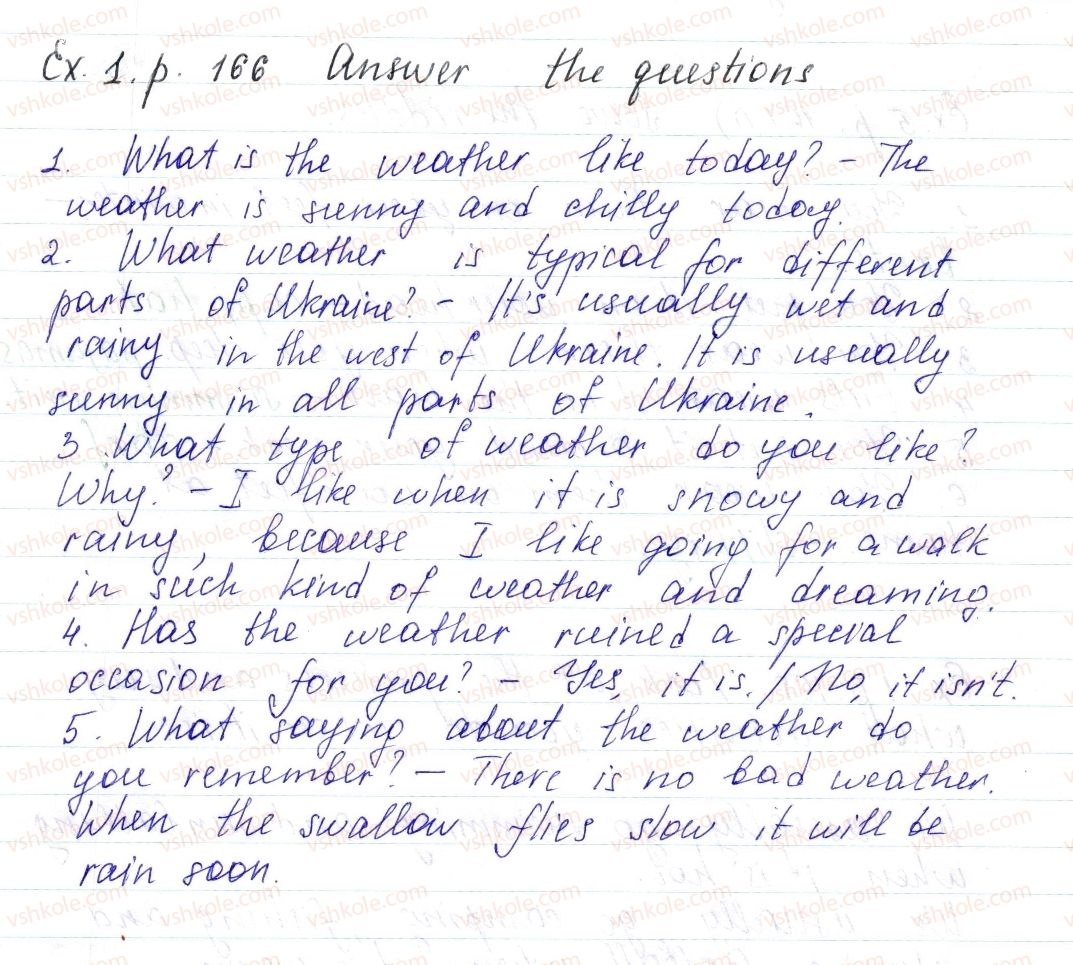 Ex. 1. p. 166 Answer the questions
1. What is the weather like today? - The
weather is sunny and chilly today.
2. What weather is typical for different
parts of Ukraine? - It's usually wet and
rainy in the west of Ukraine. It is usually
sunny in all parts of Ukraine.
3. What type of weather do you like?
Why? - I like when it is snowy and
rainy, because I like going for a walk
in such kind of weather and dreaming.
4. Has the weather ruined a special
occasion for you? - Yes, it is. / No, it isn't.
5. What saying about the weather do
you remember? - There is no bad weather.
When the swallow flies slow it will be
rain soon.